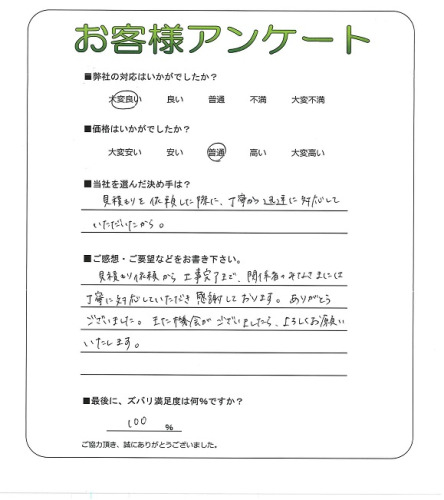 お客様アンケート
■弊社の対応はいかがでしたか？
大変良い 良い 普通 不満 大変不満
■価格はいかがでしたか？
大変安い 安い 普通 高い 大変高い
■当社を選んだ決め手は？
見積もりを依頼した際に、丁寧かつ迅速に対応して
いただいたから。
■ご感想・ご要望などをお書き下さい。
見積もり依頼から工事完了まで、関係者のみなさまには
丁寧に対応していただき感謝しております。ありがとう
ございました。また機会がございましたら、よろしくお願い
いたします。
■最後に、ズバリ満足度は何%ですか？
100 %
ご協力頂き、誠にありがとうございました。